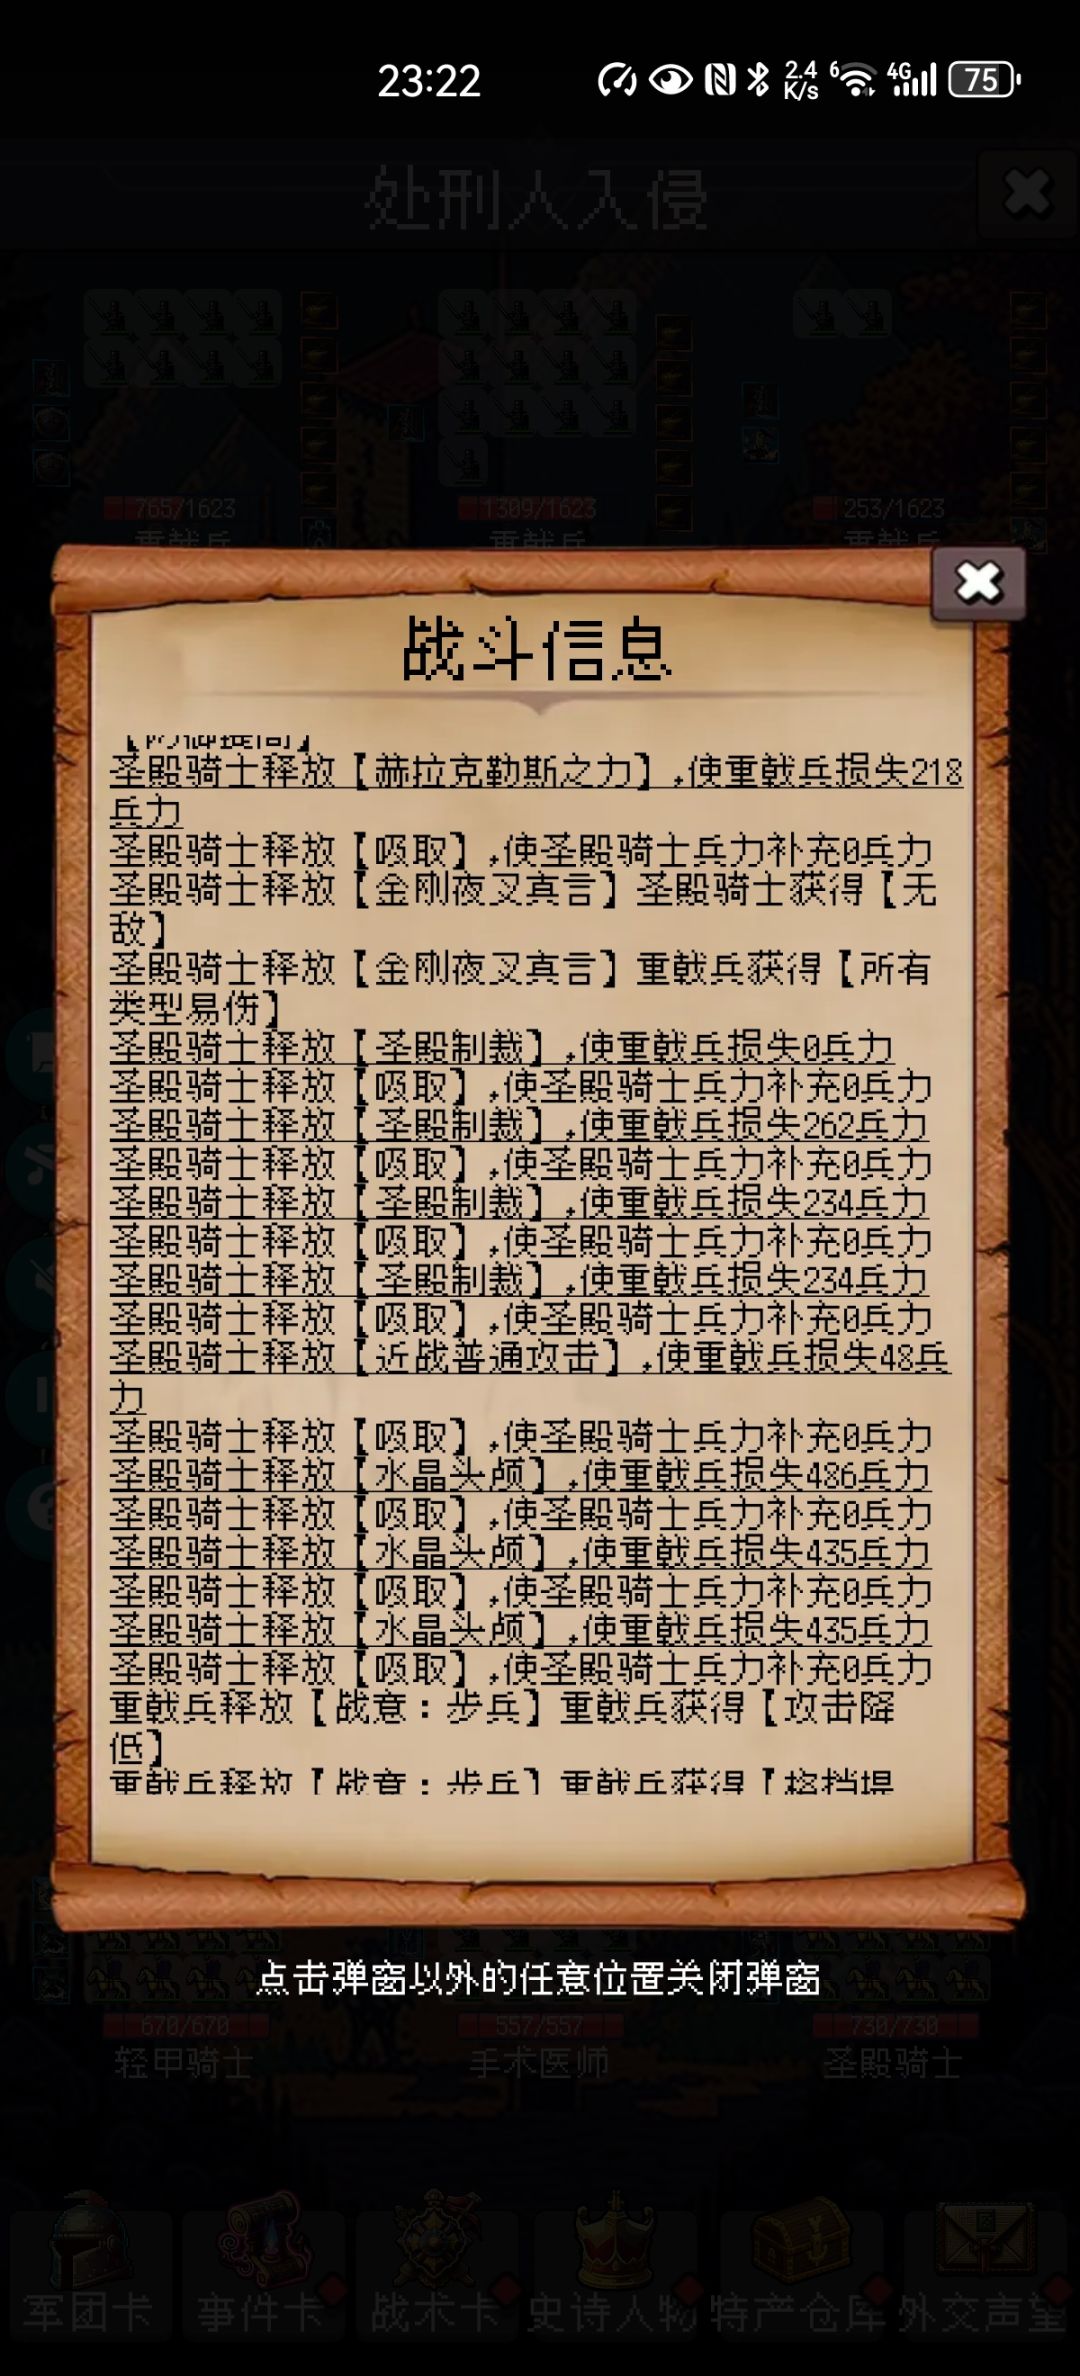 23:22
2.4
K/s
6
4G
75
处刑人入侵
765/1623
1309/1623
253/1623
重戟兵
重戟兵
重戟兵
战斗信息
圣殿骑士释放【赫拉克勒斯之力】,使重戟兵损失218
兵力
圣殿骑士释放【吸取】,使圣殿骑士兵力补充0兵力
圣殿骑士释放【金刚夜叉真言】圣殿骑士获得【无
敌】
圣殿骑士释放【金刚夜叉真言】重戟兵获得【所有
类型易伤】
圣殿骑士释放【圣殿制裁】,使重戟兵损失0兵力
圣殿骑士释放【吸取】,使圣殿骑士兵力补充0兵力
圣殿骑士释放【圣殿制裁】,使重戟兵损失262兵力
圣殿骑士释放【吸取】,使圣殿骑士兵力补充0兵力
圣殿骑士释放【圣殿制裁】,使重戟兵损失234兵力
圣殿骑士释放【吸取】,使圣殿骑士兵力补充0兵力
圣殿骑士释放【圣殿制裁】,使重戟兵损失234兵力
圣殿骑士释放【吸取】,使圣殿骑士兵力补充0兵力
圣殿骑士释放【近战普通攻击】,使重戟兵损失48兵
力
圣殿骑士释放【吸取】,使圣殿骑士兵力补充0兵力
圣殿骑士释放【水晶头颅】,使重戟兵损失486兵力
圣殿骑士释放【吸取】,使圣殿骑士兵力补充0兵力
圣殿骑士释放【水晶头颅】,使重戟兵损失435兵力
圣殿骑士释放【吸取】,使圣殿骑士兵力补充0兵力
圣殿骑士释放【水晶头颅】,使重戟兵损失435兵力
圣殿骑士释放【吸取】,使圣殿骑士兵力补充0兵力
重戟兵释放【战意：步兵】重戟兵获得【攻击降
低】
重戟兵释放【战意：步兵】重戟兵获得【格挡提
点击弹窗以外的任意位置关闭弹窗
670/670
557/557
730/730
轻甲骑士
手术医师
圣殿骑士
军团卡
事件卡
战术卡
史诗人物
特产仓库
外交声望